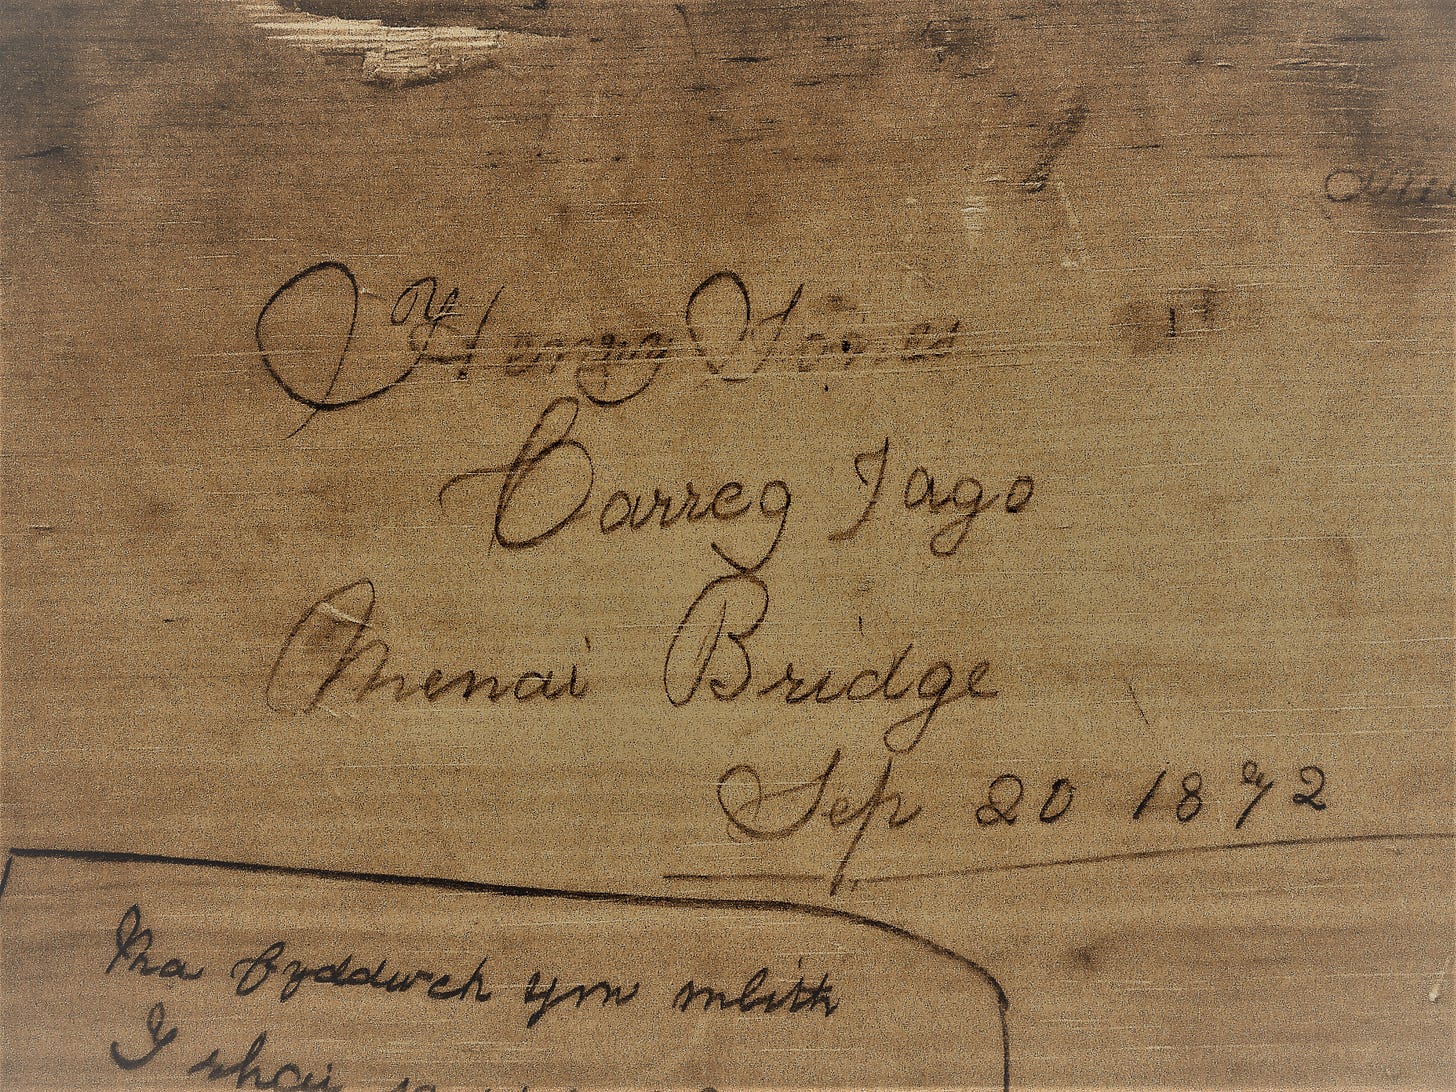 Henry Jones
Carreg Iago
Menai Bridge
Sep 20 1872
Na fyddwch ym mhlith
Y rhai